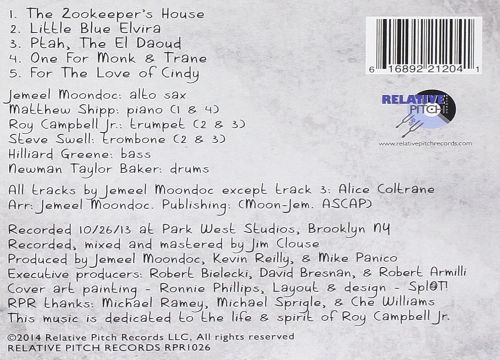 1. The Zookeeper's House
2. Little Blue Elvira
3. Ptah, The El Daoud
4. One For Monk & Trane
5. For The Love of Cindy
6 16892 21204 1
RELATIVE
PITCH
www.relativepitchrecords.com
Jemeel Moondoc: alto sax
Matthew Shipp: piano (1 & 4)
Roy Campbell Jr.: trumpet (2 & 3)
Steve Swell: trombone (2 & 3)
Hilliard Greene: bass
Newman Taylor Baker: drums
All tracks by Jemeel Moondoc except track 3: Alice Coltrane
Arr: Jemeel Moondoc. Publishing: (Moon-Jem. ASCAP)
Recorded 10/26/13 at Park West Studios, Brooklyn NY
Recorded, mixed and mastered by Jim Clouse
Produced by Jemeel Moondoc, Kevin Reilly, & Mike Panico
Executive producers: Robert Bielecki, David Bresnan, & Robert Armilli
Cover art painting - Ronnie Phillips, Layout & design - Spl@T!
RPR thanks: Michael Ramey, Michael Sprigle, & Ché Williams
This music is dedicated to the life & spirit of Roy Campbell Jr.
©2014 Relative Pitch Records LLC, All rights reserved
RELATIVE PITCH RECORDS RPR1026